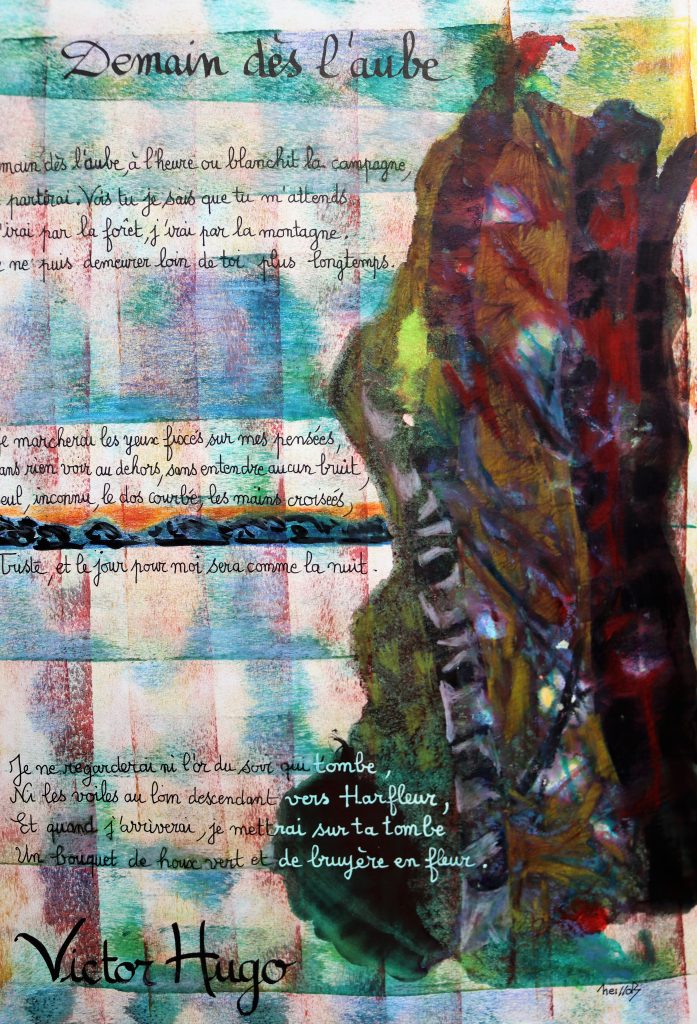 Demain dès l'aube
main dès l'aube, à l'heure ou blanchit la campagne,
partirai. Vois tu je sais que tu m'attends
irai par la forêt, j'irai par la montagne.
ne puis demeurer loin de toi plus longtemps.
e marcherai les yeux fixés sur mes pensées,
ans rien voir au dehors, sans entendre aucun bruit,
eul, inconnu, le dos courbé, les mains croisées,
Triste, et le jour pour moi sera comme la nuit.
Je ne regarderai ni l'or du soir qui tombe,
Ni les voiles au loin descendant vers Harfleur,
Et quand j'arriverai, je mettrai sur ta tombe
Un bouquet de houx vert et de bruyère en fleur.
Victor Hugo